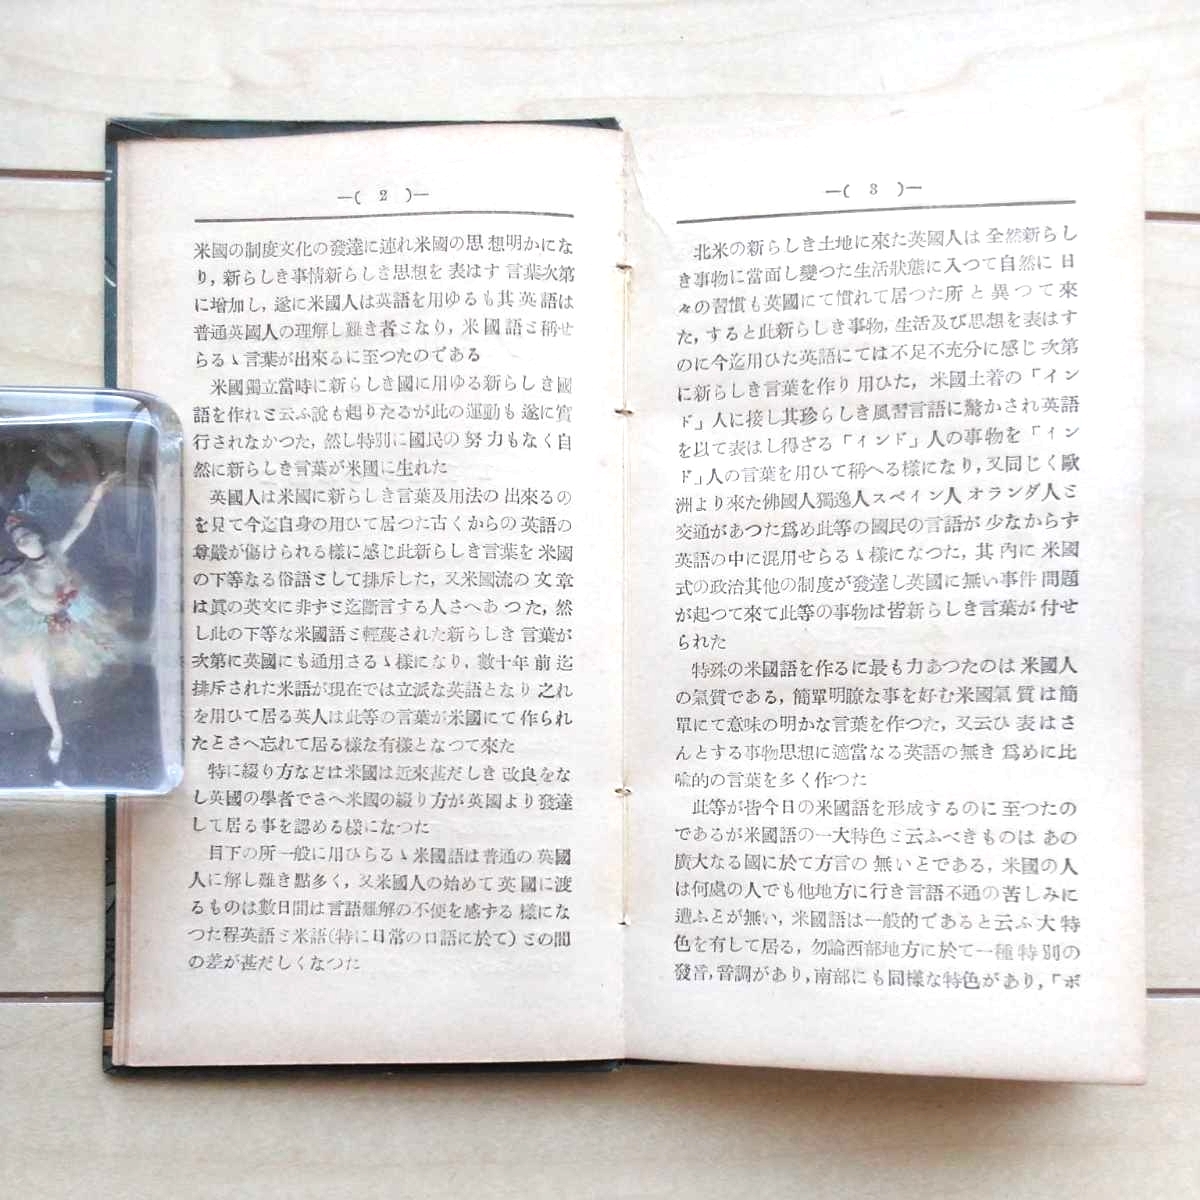 —( 2 )—
米國の制度文化の發達に連れ米國の思想明かにな
り，新らしき事情新らしき思想を表はす言葉次第
に增加し，遂に米國人は英語を用ゆるも其英語は
普通英國人の理解し難き者となり，米國語と稱せ
らるゝ言葉が出來るに至つたのである
米國獨立當時に新らしき國に用ゆる新らしき國
語を作れと云ふ說も起りたるが此の運動も遂に實
行されなかつた，然し特別に國民の努力もなく自
然に新らしき言葉が米國に生れた
英國人は米國に新らしき言葉及用法の出來るの
を見て今迄自身の用ひて居つた古くからの英語の
尊嚴が傷けられる樣に感じ此新らしき言葉を米國
の下等なる俗語として排斥した，又米國流の文章
は眞の英文に非ずと迄斷言する人さへあつた，然
し此の下等な米國語と輕蔑された新らしき言葉が
次第に英國にも通用さるゝ樣になり，數十年前迄
排斥された米語が現在では立派な英語となり之れ
を用ひて居る英人は此等の言葉が米國にて作られ
たとさへ忘れて居る樣な有樣となつて來た
特に綴り方などは米國は近來甚だしき改良をな
し英國の學者でさへ米國の綴り方が英國より發達
して居る事を認める樣になつた
目下の所一般に用ひらるゝ米國語は普通の英國
人に解し難き點多く，又米國人の始めて英國に渡
るものは數日間は言語難解の不便を感する樣にな
つた程英語と米語(特に日常の口語に於て)との間
の差が甚だしくなつた
—( 3 )—
北米の新らしき土地に來た英國人は全然新らし
き事物に當面し變つた生活狀態に入つて自然に日
々の習慣も英國にて慣れて居つた所と異つて來
た，すると此新らしき事物，生活及び思想を表はす
のに今迄用ひた英語にては不足不充分に感じ次第
に新らしき言葉を作り用ひた，米國土着の「イン
ド」人に接し其珍らしき風習言語に驚かされ英語
を以て表はし得ざる「インド」人の事物を「イン
ド」人の言葉を用ひて稱へる樣になり，又同じく歐
洲より來た佛國人獨逸人スペイン人オランダ人と
交通があつた爲め此等の國民の言語が少なからず
英語の中に混用せらるゝ樣になつた，其內に米國
式の政治其他の制度が發達し英國に無い事件問題
が起つて來て此等の事物は皆新らしき言葉が付せ
られた
特殊の米國語を作るに最も力あつたのは米國人
の氣質である，簡單明瞭な事を好む米國氣質は簡
單にて意味の明かな言葉を作つた，又云ひ表はさ
んとする事物思想に適當なる英語の無き爲めに比
喩的の言葉を多く作つた
此等が皆今日の米國語を形成するのに至つたの
であるが米國語の一大特色と云ふべきものはあの
廣大なる國に於て方言の無いとである，米國の人
は何處の人でも他地方に行き言語不通の苦しみに
遭ふとが無い，米國語は一般的であると云ふ大特
色を有して居る，勿論西部地方に於て一種特別の
發音，音調があり，南部にも同樣な特色があり，「ボ